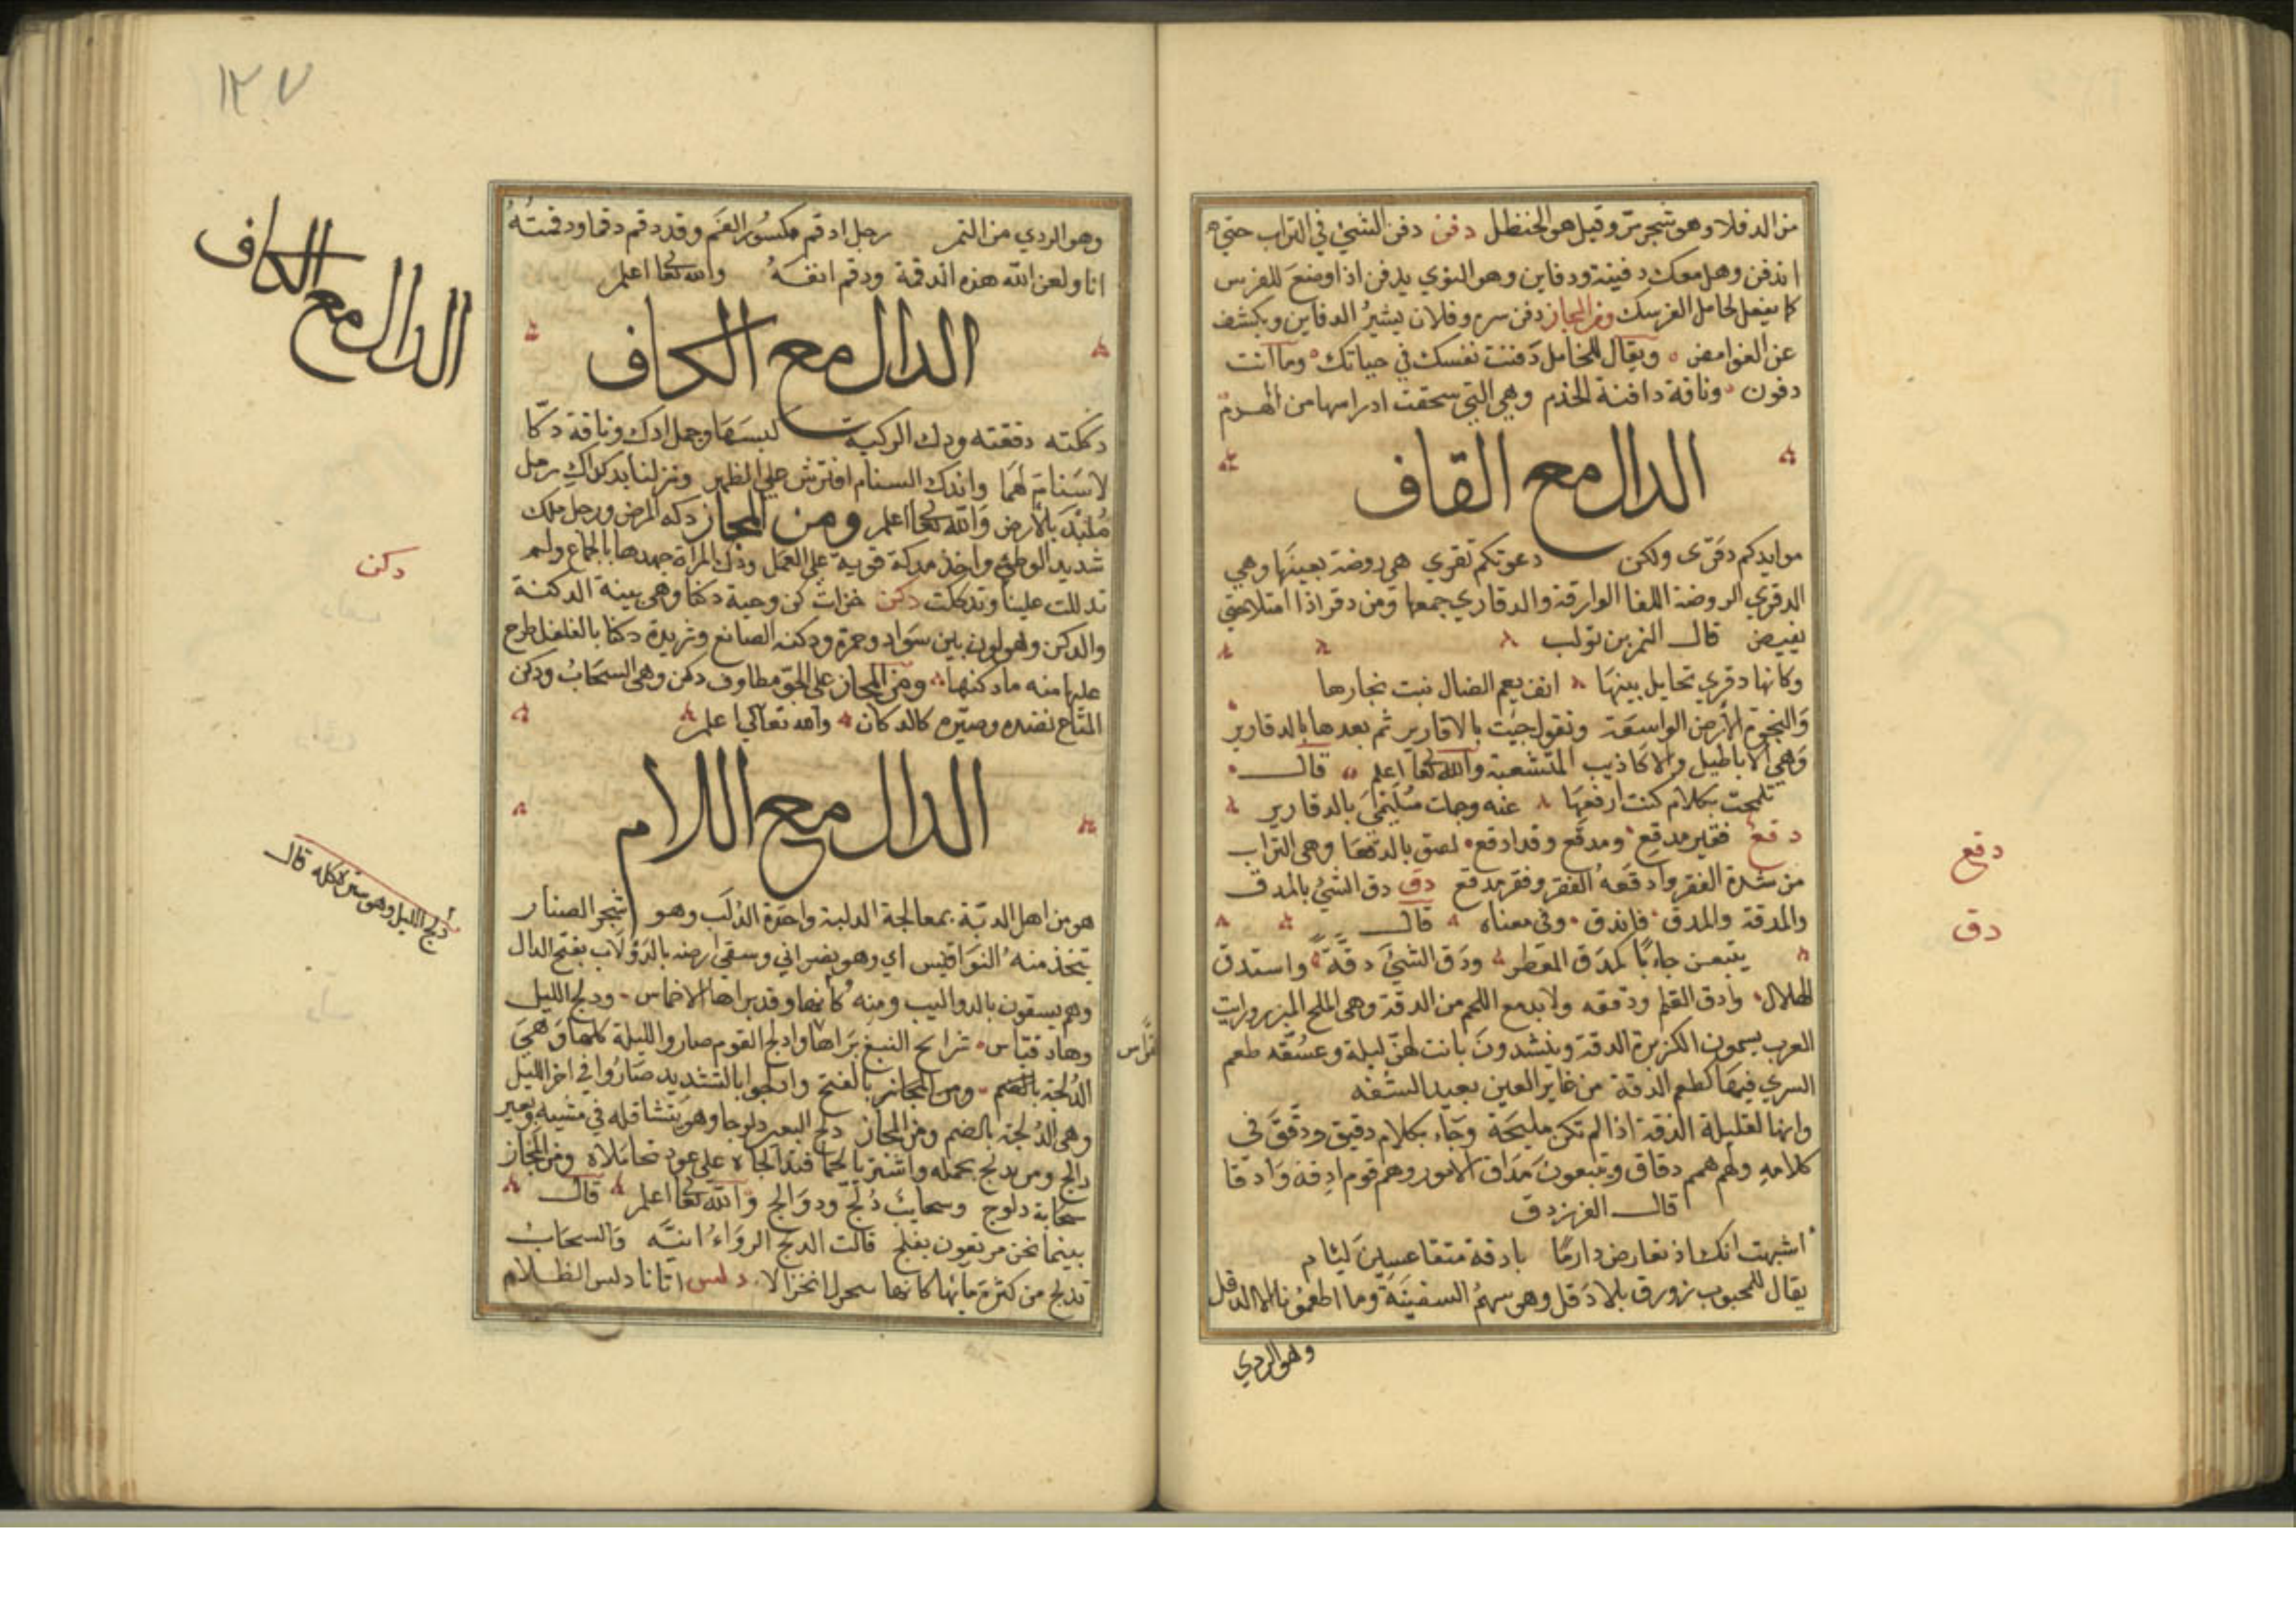 من الدفلا وهو شجر مرّ وقيل هو الحنظل دفن دفن الشيئ في التراب حتي
اندفن وهل معك دفينة ودفاين وهو النوي يدفن اذا وضع للغرس
كما يفعل لحامل الفرسك ومن المجاز دفن سره وفلان يثير الدفاين ويكشف
عن الغوامض ويقال للخامل دفنت نفسك في حياتك وما انت
دفون وناقة دافنة الجذم وهي التي سحقت اضراسها من الهرم
الدال مع القاف
موايدكم دقرى ولكن دعوتكم تقري هي روضة بعينها وهي
الدقري الروضة اللفا الوارفة والدقاري جمعها ومن دقر اذا امتلا حتي
يفيض قال النمر بن تولب
وكانها دقري تخايل بينها انف يعم الضال نبت بحارها
والنجوة الارض الواسعة وتقول جيت بالاقارير ثم بعدها بالدقارير
وهي الاباطيل والاكاذيب المتشعبة والله تعا اعلم قال
بكلام كنت ارفعها عنه وجات بالدقارير
دقع فقير مدقع ومدقع وقد ادقع لصق بالدقعا وهي التراب
من شدة الفقر وادقعه الفقر وفقر مدقع دق دق الشيئ بالمدق
والمدقة والمدق فاندق وفي معناه قال
يتبعن جابا كمدق المعطر ودق الشيئ دقة واستدق
الهلال وادق القلم ودققه ولا بد مع اللحم من الدقة وهي الملح المبزر ورايت
العرب يسمون الكزبرة الدقة وينشدون باتت لهن ليلة طعم
السري فيها كطعم الدقة من غاير العين بعيد الشقه
وانها لقليلة الدقة اذا لم تكن مليحة وجاء بكلام دقيق ودقق في
كلامه ولهم همم دقاق ويتبعون مداق الامور وهم قوم ادقة وادقا
قال الفرزدق
اشبهت انك اذ تعارض دارما بادقة متقاعسين ليام
يقال للمحبوب زورق بلا دقل وهو سهم السفينة وما اطعمونا الا الدقل
وهو الردي
دقع
دق
١٢٧
وهو الردي من التمر رجل ادقم مكسور الفم وقد دقم دقما ودقمته
انا ولعن الله هذه الدقمة ودقم انفه والله تعا اعلم
الدال مع الكاف
دككته دفعته ودك الركية كبسها وجمل ادك وناقة دكا
لا سنام لهما واندك السنام افترش علي الظهر ونزلنا بدكداك رمل
متلبد بالارض والله تعا اعلم ومن المجاز دكه المرض ورجل مدك
شديد الوطئ واخذ مدكة قوية علي العمل ودك المراة جهدها بالجماع ولم
تدللت علينا وتدكلت دكن خز ادكن وجبة دكنا وهي بينة الدكنة
والدكن وهو لون بين سواد وحمرة ودكنه الصانع وثريدة دكنا بالفلفل طرح
عليها منه ما دكنها ومن المجاز علي الجو مطاوف دكن وهي السحاب ودكن
المتاع نضده وصيره كالدكان والله تعالي اعلم
الدال مع اللام
هو من اهل الدبة بمعالجة الدلبة واحدة الدلب وهو شجر الصنار
يتخذ منه النواقيس اي وهو نصراني وسقي ارضه بالدولاب بفتح الدال
وهم يسقون بالدواليب ومنه كانها وقد براها الاخماس ودلج الليل
وهاد قياس شرايح النبع براها وادلج القوم صاروا الليلة كلها وهي
الدلجة بالضم ومن المجاز بالفتح وادلجوا بالتشديد صاروا في اخر الليل
وهي الدلجة بالضم ومن المجاز دلج البعير دلوجا وهو يتثاقله في مشيه وبعير
دالج ومر يدلج بحمله علي عود تحاملاه ومن المجاز
سحابة دلوج وسحايب دلج ودوالج والله تعا اعلم قال
بينما نحن مرتعون بفلج قالت الدلج الرواء انيه والسحاب
تدلج من كثرة مايها كانها تنخزل انخزالا دلس اتانا دلس الظلام
الدال مع الكاف
دكن
دلج الليل وهو سيره كله قال